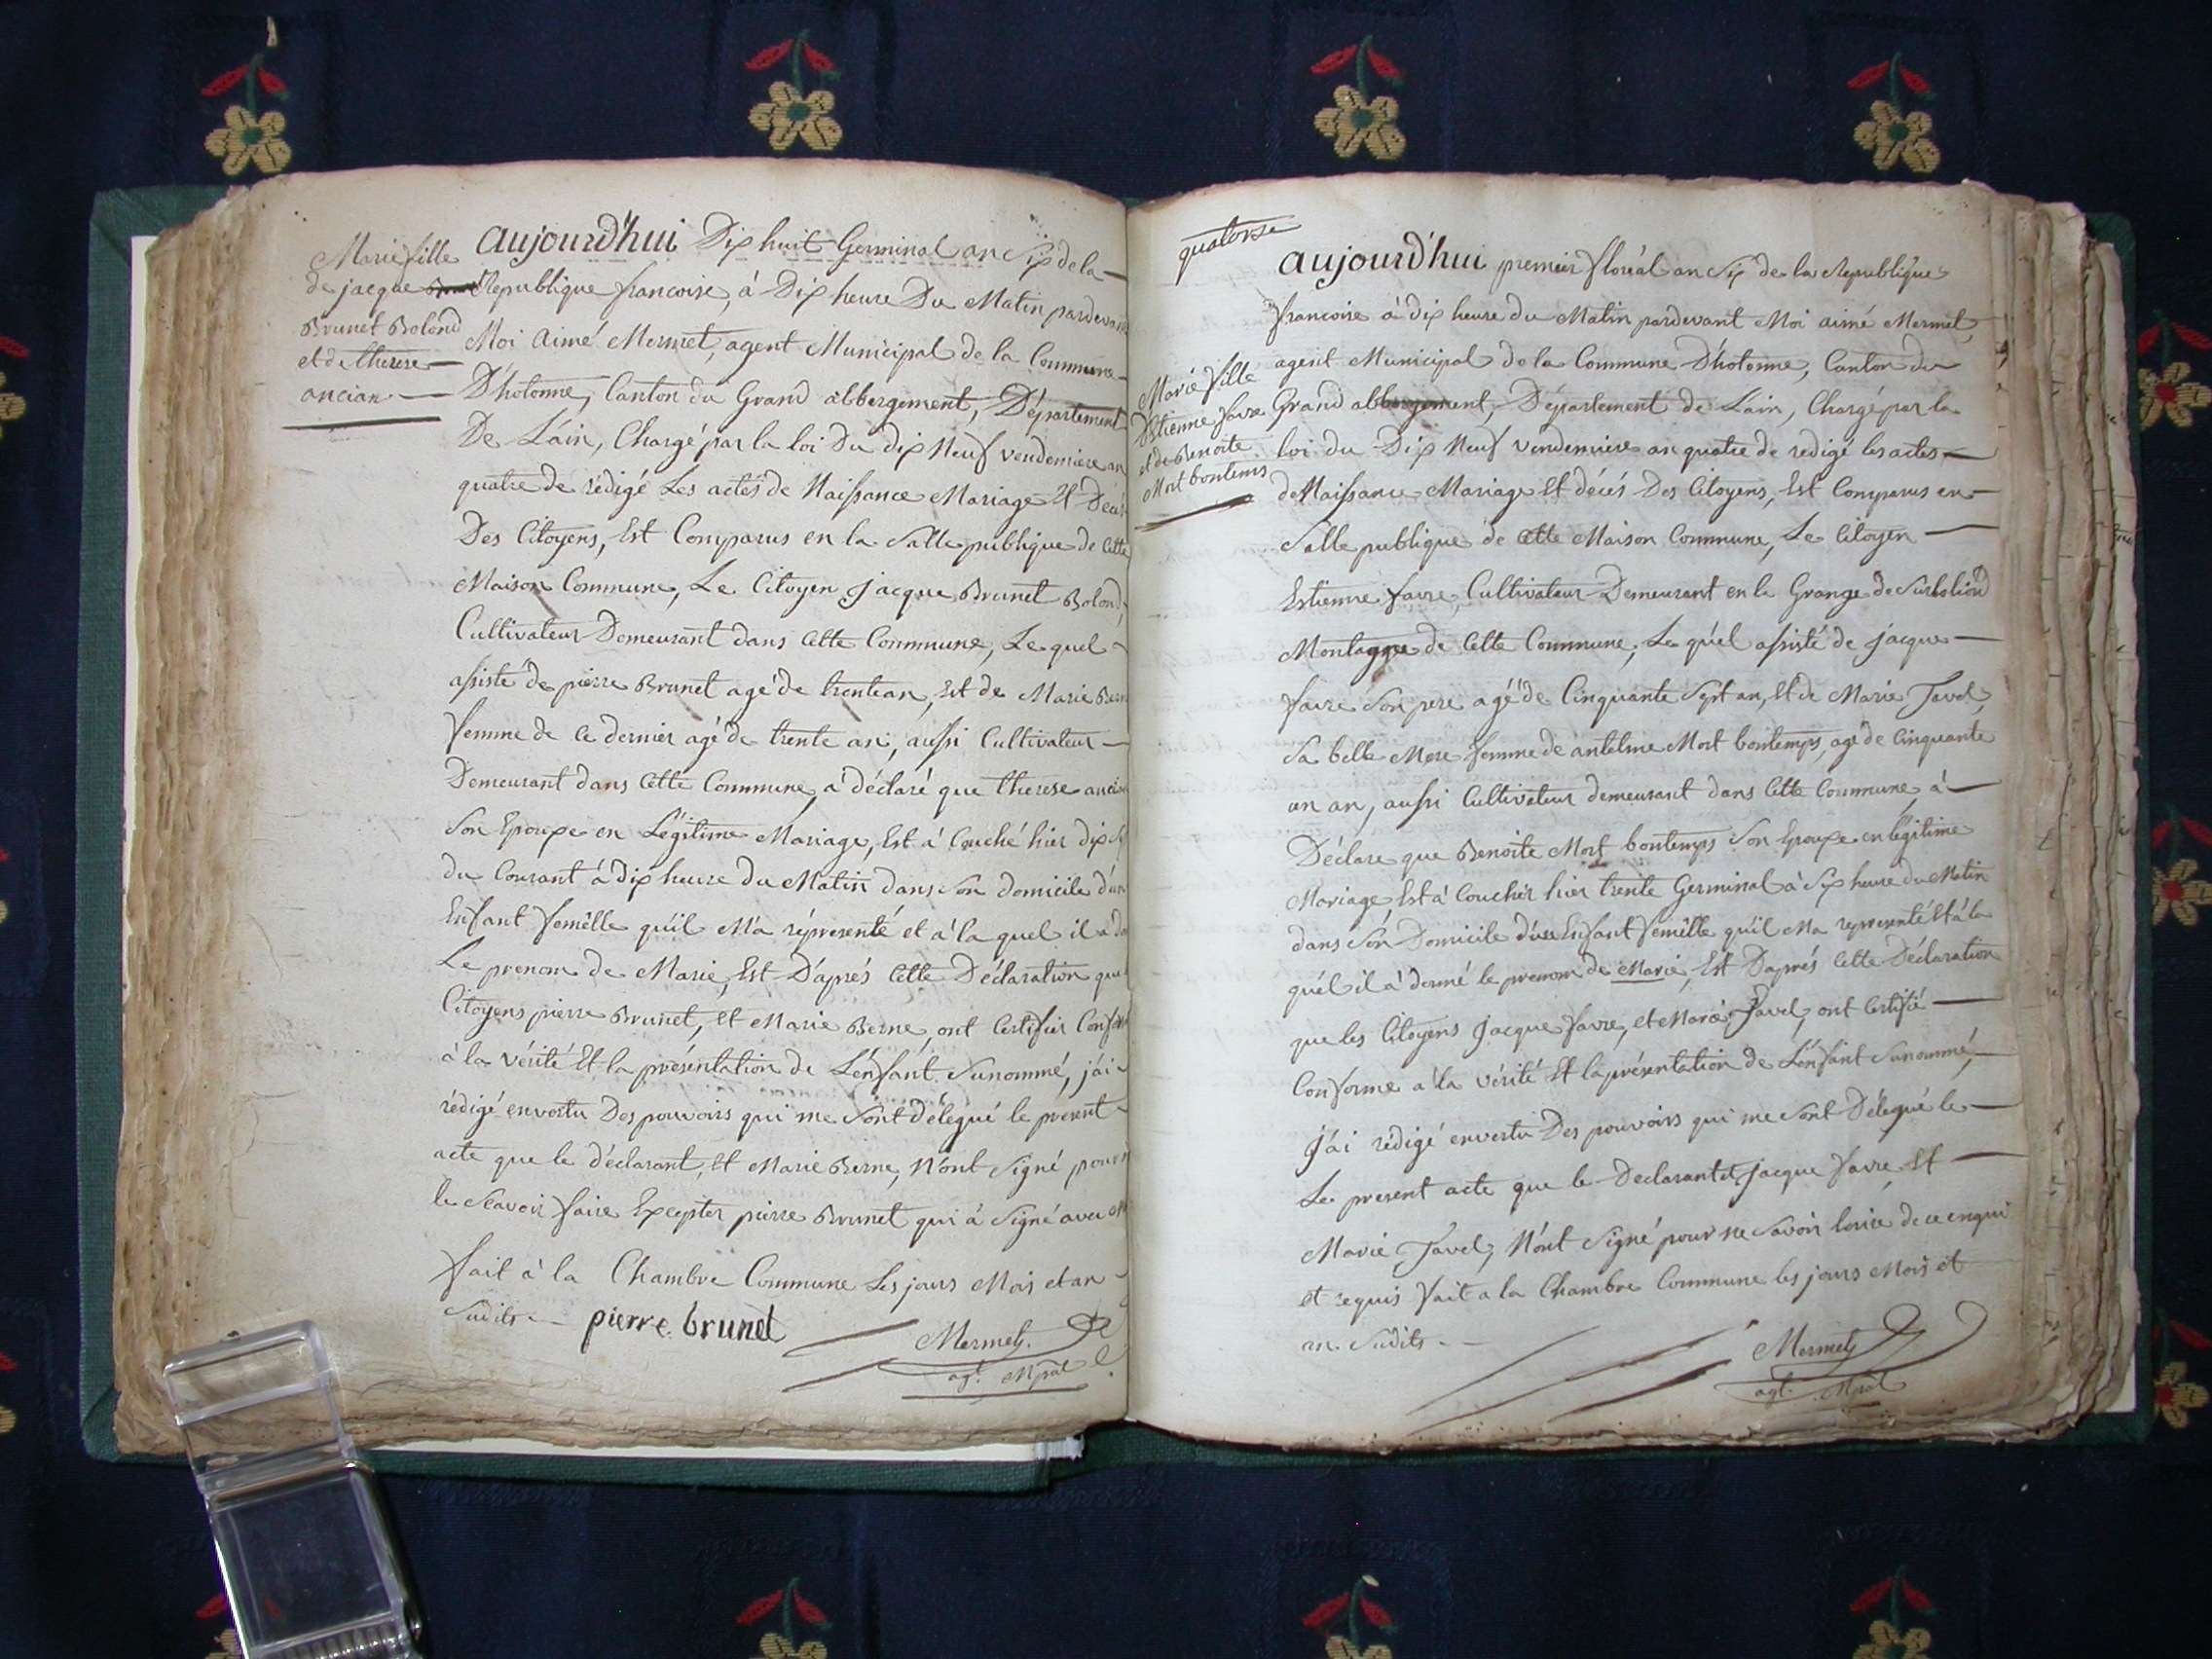 Marie fille
de jacque
Brunet Bolond
et de therese
ancian
aujourd'hui Dix huit Germinal an Six de la
Republique francoise, à Dix heure Du Matin pardevant
Moi aimé Mermet, agent Municipal de la Commune
D'hotonne, Canton du Grand abbergement, Département
De L'ain, Chargé par la loi Du dix Neuf vendemiere an
quatre de rédigé Les actes de Naissance Mariage Et Décés
Des Citoyens, Est Comparus en la Salle publique de Cette
Maison Commune, Le Citoyen jacque Brunet Bolond,
Cultivateur Demeurant dans Cette Commune, Le quel
assisté de pierre Brunet agé de trente an, Et de Marie
femme de Ce dernier agé de trente an, aussi Cultivateur
Demeurant dans Cette Commune, à déclaré que therese
Son Epouse en Légitime Mariage, Est à Couché hier dix
du Courant à dix heure du Matin dans Son domicile d'un
Enfant femelle qu'il M'a répresenté et à la quel il à
Le prenom de Marie, Est D'aprés Cette Déclaration que
Citoyens pierre Brunet, Et Marie Berne, ont Certifier
à la vérité Et la présentation de L'énfant Sunommé, j'ai
rédigé envertu Des pouvoirs qui me Sont Délegué le présent
acte que le déclarant, Et Marie Berne, N'ont Signé pour
le Scavoir faire Excepter pierre Brunet qui à Signé avec
fait à la Chambre Commune Les jours Mois et an
Sudits
pierre brunet
Mermet
agt. Mpal
quatorse
Marie fille
D'Etienne favre
et de Benoite
Mort bontems
aujourd'hui premier floréal an Six de la Republique
francoise à dix heure du Matin pardevant Moi aimé Mermet,
agent Municipal de la Commune D'hotonne, Canton du
Grand abbergement, Département de L'ain, Chargé par la
loi du Dix Neuf vendemiere an quatre de redigé les actes
de Naissance Mariage Et décés Des Citoyens, Est Comparus en
Salle publique de Cette Maison Commune, Le Citoyen
Estienne favre Cultivateur Demeurant en la Grange de
Montagne de Cette Commune, Le quél assisté de jacque
favre Son pere agé de Cinquante Sept an, Et de Marie Javel,
Sa belle Mere femme de antelme Mort bontemps, agé de Cinquante
un an, aussi Cultivateur demeurant dans Cette Commune, à
Déclare que Benoite Mort bontemps Son Epouse en légitime
Mariage, Est à Coucher hier trente Germinal à Six heure du Matin
dans Son Domicile d'un Enfant femelle qu'il Ma representé Et à la
quél il à donné le prenom de Marie, Est D'aprés Cette Déclaration
que les Citoyens Jacque favre, et Marie Javel, ont Certifié
Conforme à la vérité Et la présentation de L'énfant Sunommé,
J'ai rédigé envertu Des pouvoirs qui me Sont Délegué le
Le present acte que le Declarant et Jacque favre Et
Marie Javel, N'ont Signé pour ne Savoir Ecrire de ce enquis
et requis fait a la Chambre Commune les jours Mois et
an Sudits
Mermet
agt. Mpal